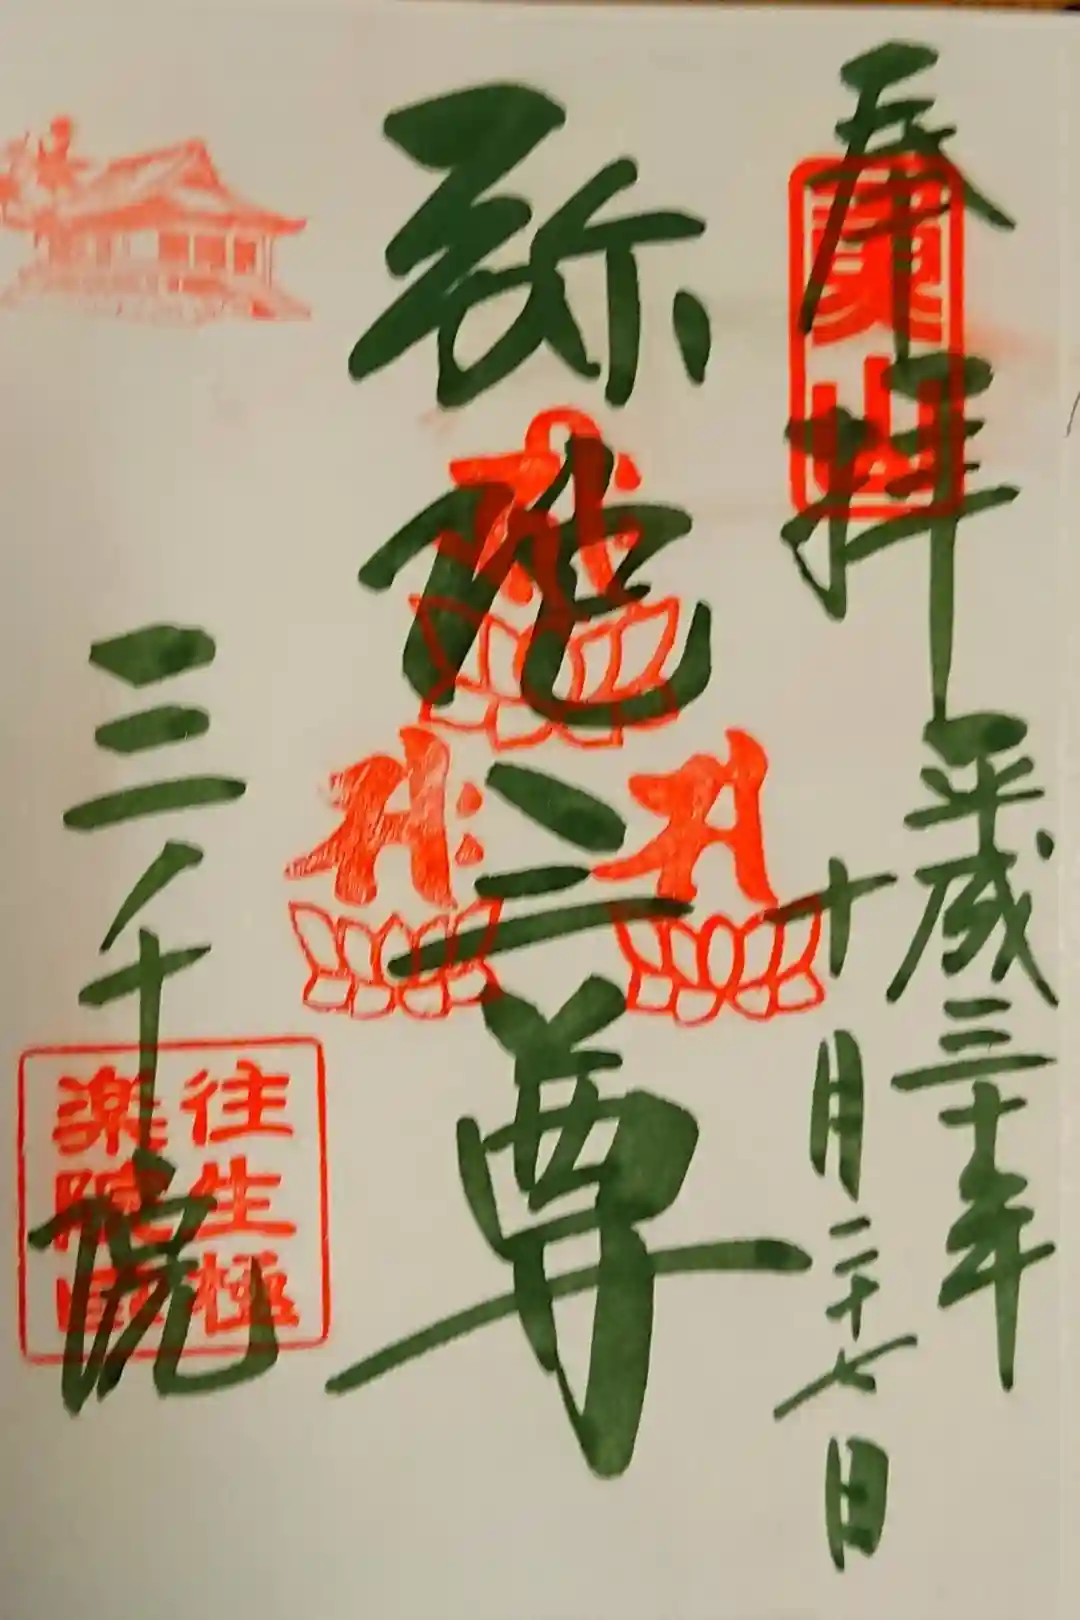 奉拝
平成三十年
十月二十七日
弥陀三尊
三千院
往生極
楽院印